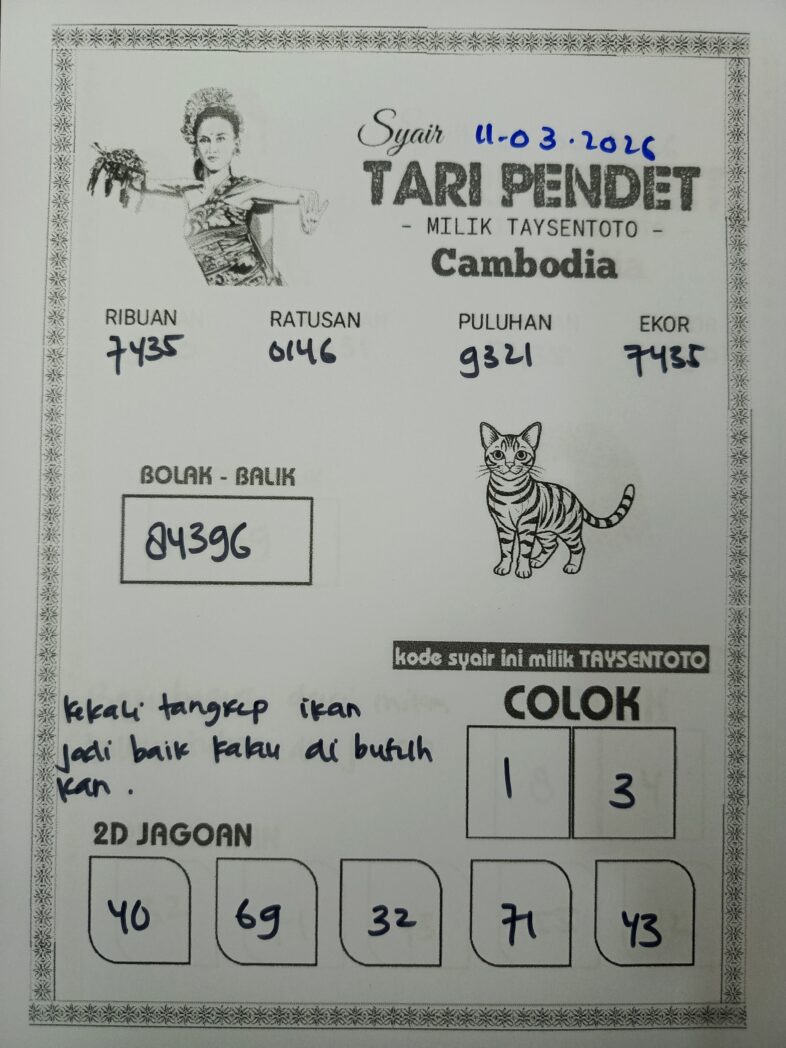 Syair 11-03.2026
TARI PENDET
- MILIK TAYSENTOTO -
Cambodia
RIBUAN RATUSAN PULUHAN EKOR
7435 0146 9321 7435
BOLAK - BALIK
84396
kode syair ini milik TAYSENTOTO
kekali tangkep ikan
jadi baik kalau di butuh
kan .
COLOK
1 3
2D JAGOAN
40 69 32 71 43